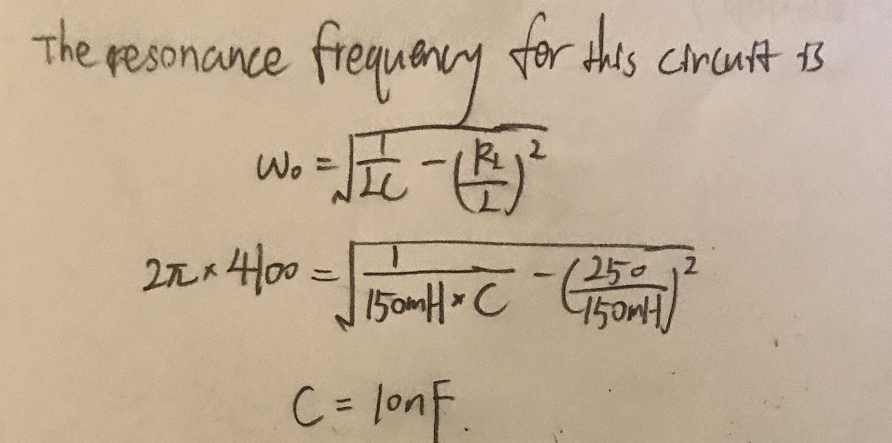 The resonance frequency for this circuit is
ω₀ = √(1/LC − (R_L/L)²)
2π × 4100 = √(1/(150mH × C) − (250/150mH)²)
C = 10nF.